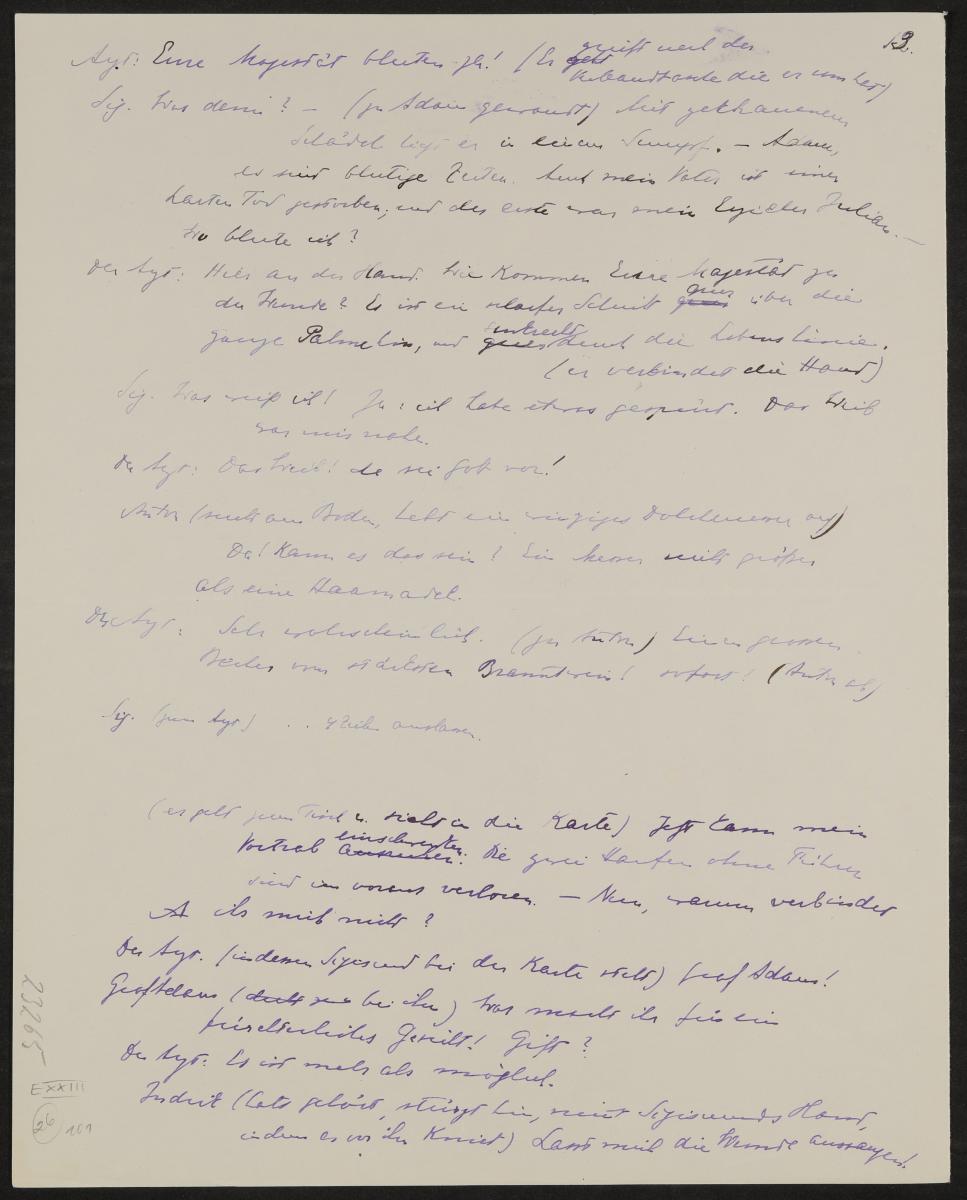 3.
greift nach der
Arzt: Eure Majestät bluten ja! (Er geht
Verbandtasche die er um hat)
Sig. Was denn? — (zu Adam gewandt) Mit zerhauenem
Schädel liegt er in einem Sumpf. — Adam,
es sind blutige Zeiten. Auch mein Vater ist einen
harten Tod gestorben, und der erste war mein Erzieher Julian. —
Wo blute ich?
Der Arzt: Hier an der Hand. Wie kommen Eure Majestät zu
quer
der Wunde? Es ist ein scharfer Schnitt quer über die
senkrecht
ganze Palme hin, und quer durch die Lebenslinie.
(er verbindet die Hand)
Sig. Was weiß ich! Ja: ich habe etwas gespürt. Das Weib
war mir nahe.
Der Arzt: Das Weib! da sei Gott vor!
Anton (sucht am Boden, hebt ein winziges Dolchmesser auf)
Da! Kann es das sein? Ein Messer nicht größer
als eine Haarnadel.
Der Arzt: Sehr wahrscheinlich. (zu Anton) Einen grossen
Becher vom stärksten Branntwein! sofort! (Anton ab)
Sig. (zum Arzt) . . 4 Zeilen auslassen.
(er geht zum Tisch u. sieht in die Karte) Jetzt kann mein
einschwenken.
Vortrab Die zwei Haufen ohne Führer
sind im voraus verloren. — Nun, warum verbindet
A ihr mich nicht?
Der Arzt. (indessen Sigismund bei der Karte steht) Graf Adam!
Graf Adam (dicht bei ihm) Was macht ihr für ein
fürchterliches Gesicht! Gift?
Der Arzt: Es ist mehr als möglich.
Indrik (hats gehört, stürzt hin, nimmt Sigismunds Hand,
indem er vor ihm kniet) Lasst mich die Wunde aussaugen!
23265
E XXIII
26
101